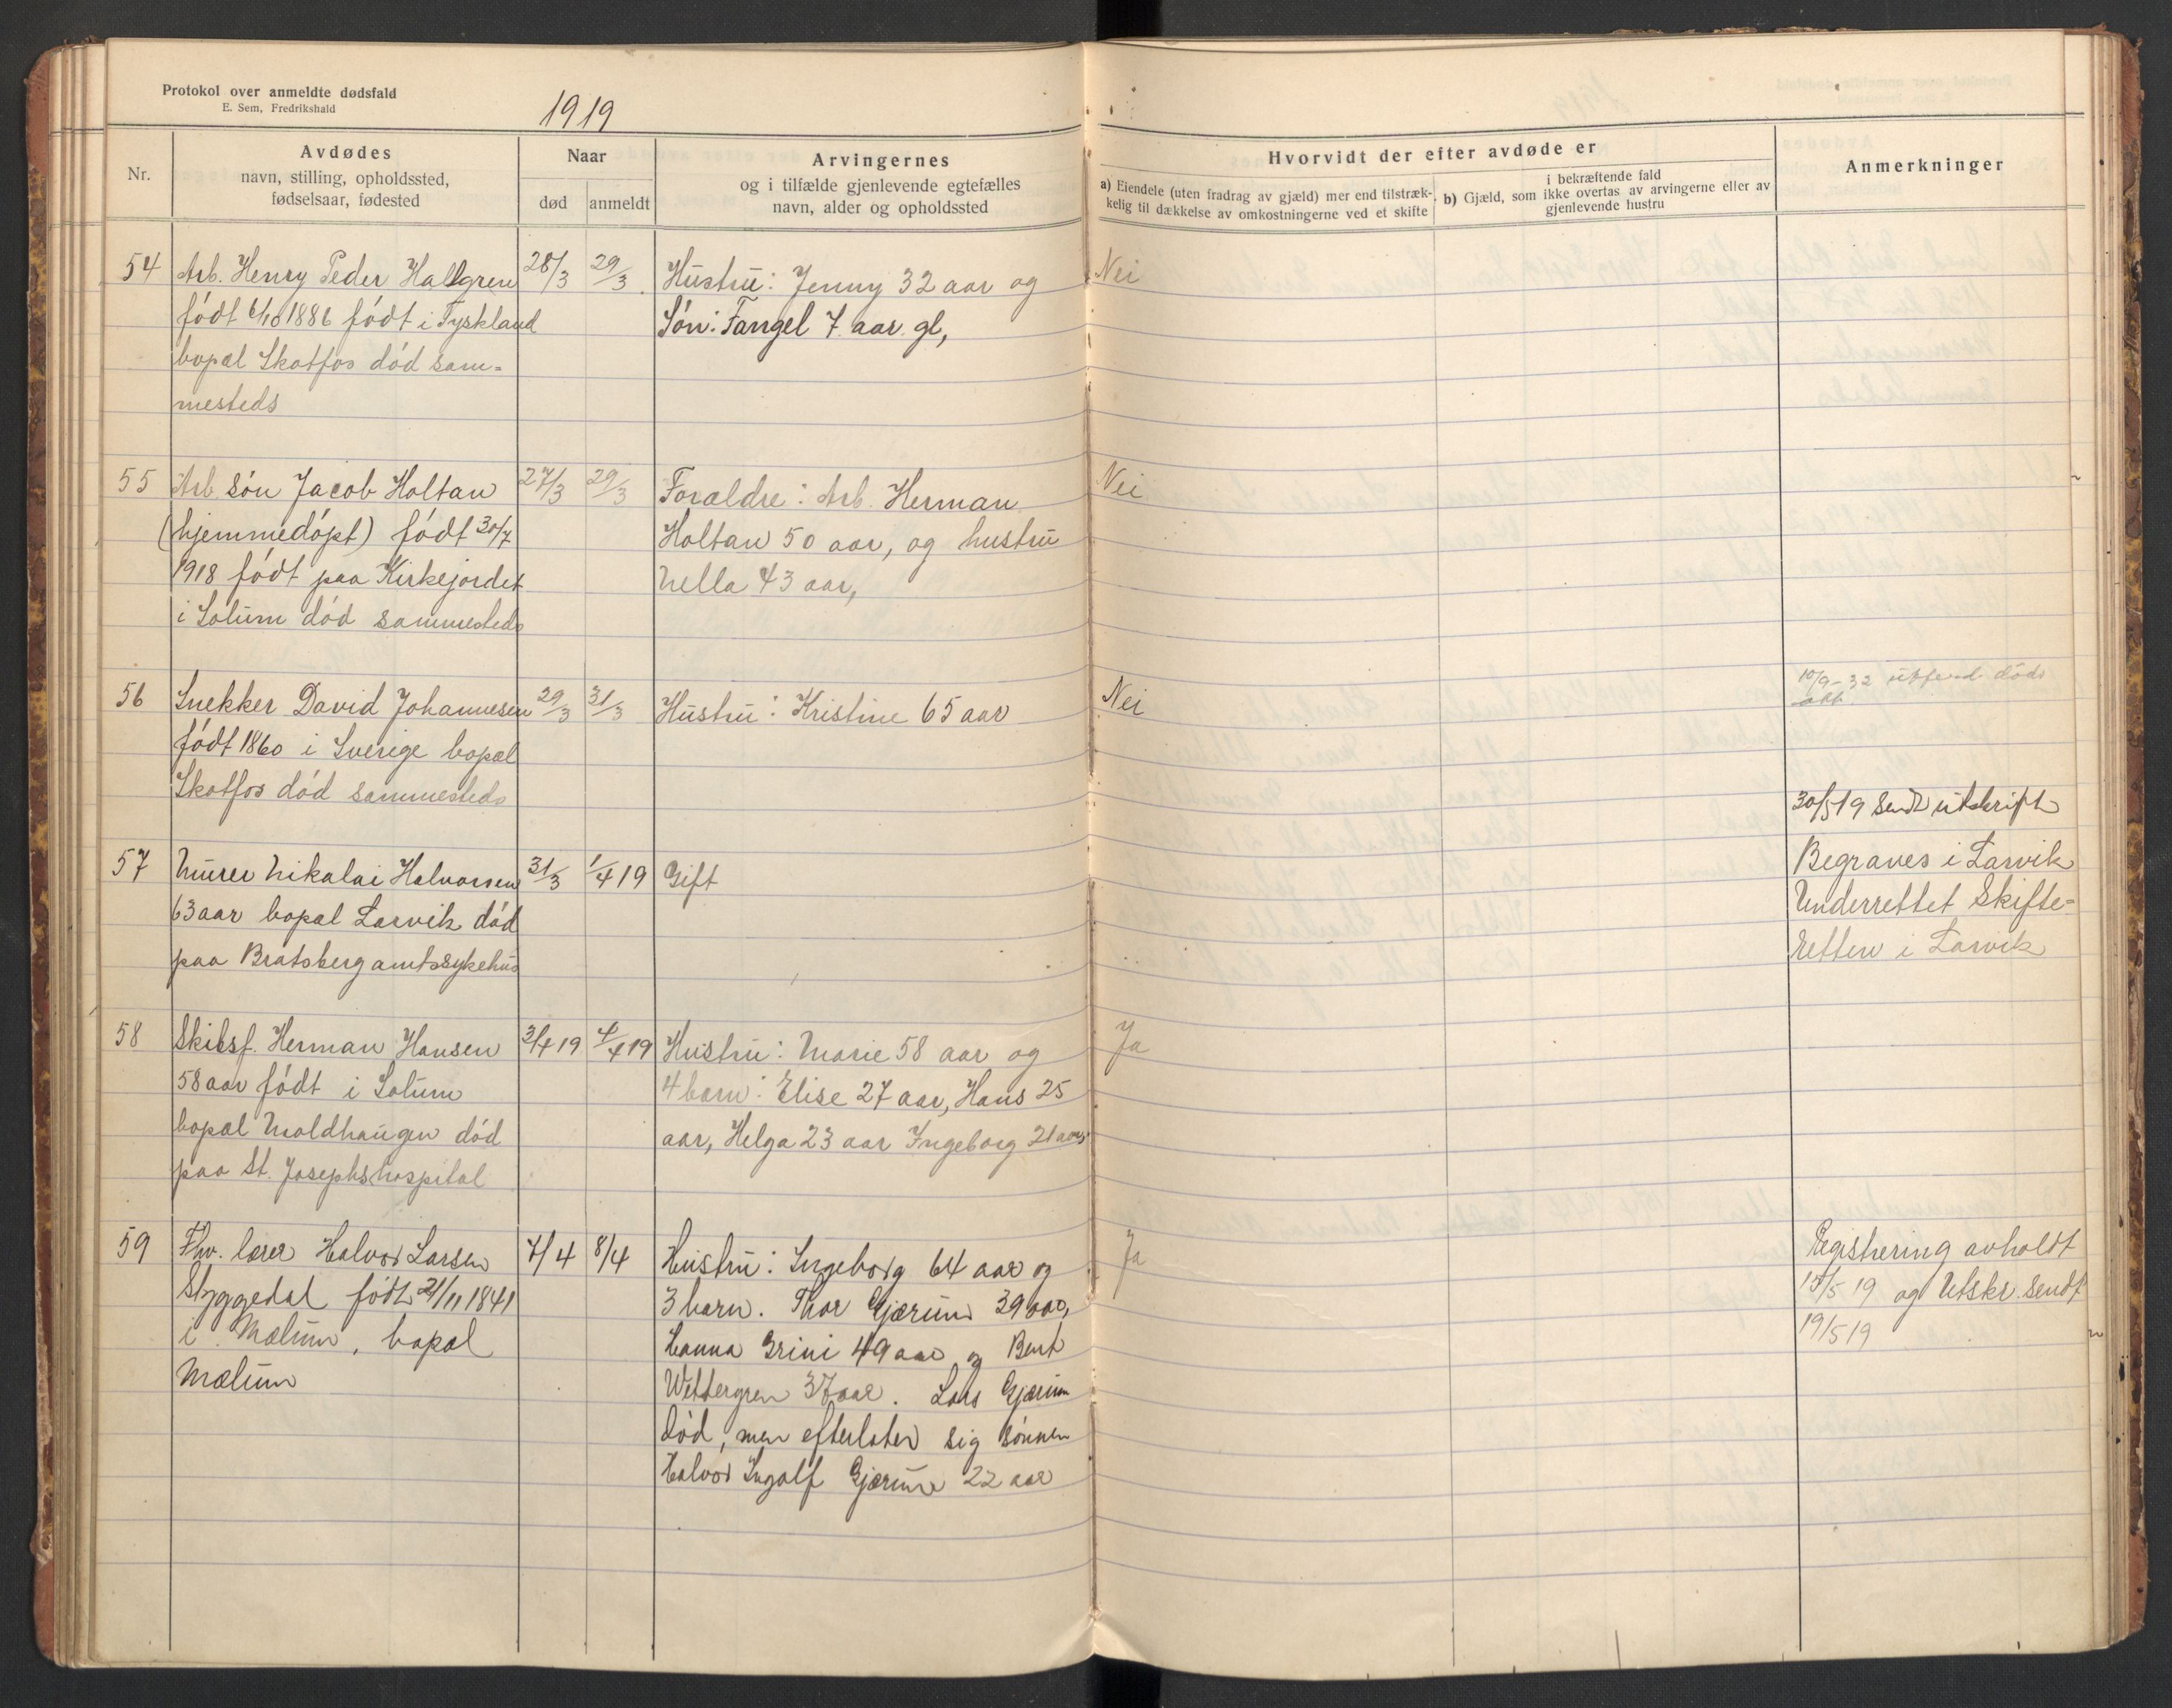 Protokol over anmeldte dødsfald
E. Sem, Fredrikshald
1919
Nr.
Avdødes
navn, stilling, opholdssted,
fødselsaar, fødested
Naar
død
anmeldt
Arvingernes
og i tilfælde gjenlevende egtefælles
navn, alder og opholdssted
Hvorvidt der efter avdøde er
a) Eiendele (uten fradrag av gjæld) mer end tilstræk-
kelig til dækkelse av omkostningerne ved et skifte
i bekræftende fald
b) Gjæld, som ikke overtas av arvingerne eller av
gjenlevende hustru
Anmerkninger
54
Arb. Henry Peder Hallgren
født 6/10 1886 født i Tyskland
bopæl Skotfos død sam-
mesteds
28/3
29/3
Hustru: Jenny 32 aar og
Søn: Fangel 7 aar gl,
Nei
55
Arb. søn Jacob Holtan
(hjemmedøpt) født 30/7
1918 født paa Kirkejordet
i Solum død sammesteds
27/3
29/3
Forældre: Arb. Herman
Holtan 50 aar, og hustru
Nella 43 aar,
Nei
56
Snekker David Johannesen
født 1860 i Sverige bopæl
Skotfos død sammesteds
29/3
31/3
Hustru: Kristine 65 aar
Nei
10/9-32 utferd døds
att
30/5 19 sendt utskrift
57
Murer Nikolai Halvorsen
63 aar bopæl Larvik død
paa Bratsberg amtssykehus
31/3
1/4 19
Gift
Begraves i Larvik
Underrettet Skifte-
retten i Larvik
58
Skibsf. Herman Hansen
58 aar født i Solum
bopæl Moldhaugen død
paa St. Josephs hospital
3/4 19
4/4 19
Hustru: Marie 58 aar og
4 barn: Elise 27 aar, Hans 25
aar, Helga 23 aar Ingeborg 21 aar
Ja
59
Fhv. lærer Halvor Larsen
Styggedal født 21/11 1841
i Mælum, bopæl
Mælum
7/4
8/4
Hustru: Ingeborg 64 aar og
3 barn. Thor Gjærum 39 aar,
Hanna Grini 49 aar og Berit
Wettergren 37 aar. Lars Gjærum
død, men efterlater sig sønnen
Halvor Ingolf Gjærum 22 aar
Ja
Registrering avholdt
15/5 19 og Utskr. sendt
19/5 19